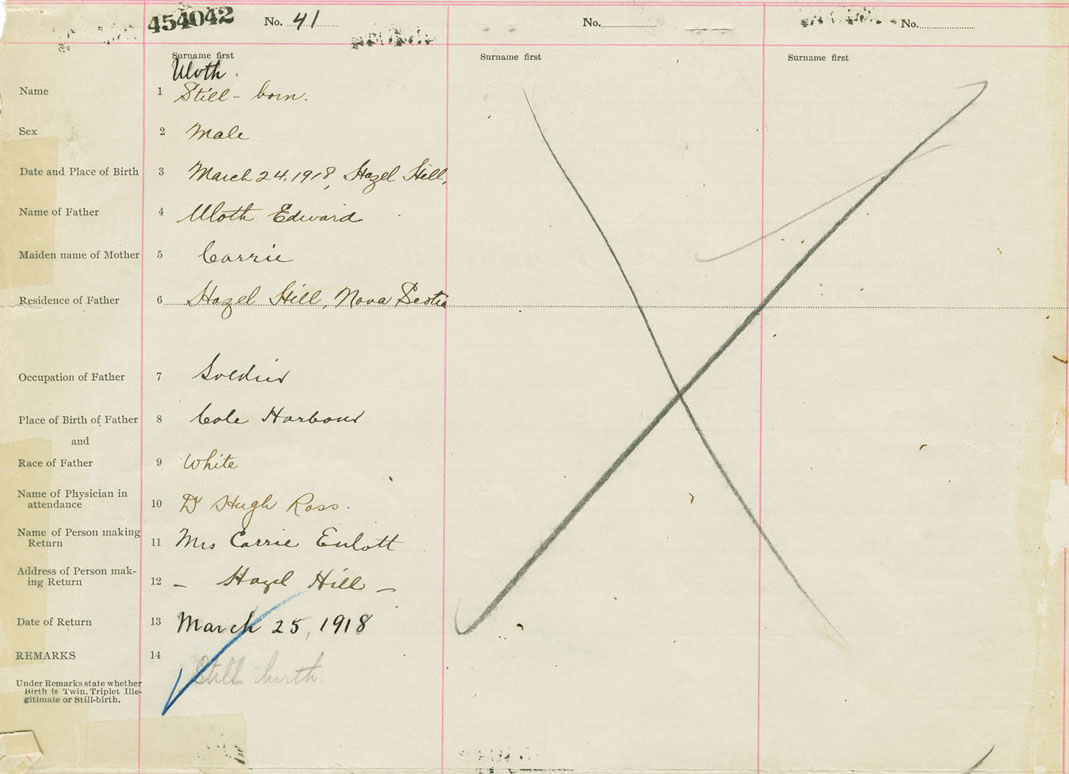 454042 No. 41 No. No.
Surname first Surname first Surname first
Uloth
Name 1 Still-born.
Sex 2 Male
Date and Place of Birth 3 March 24, 1918, Hazel Hill,
Name of Father 4 Uloth Edward
Maiden name of Mother 5 Carrie
Residence of Father 6 Hazel Hill, Nova Scotia
Occupation of Father 7 Soldier
Place of Birth of Father 8 Cole Harbour
and
Race of Father 9 White
Name of Physician in
attendance 10 Dr Hugh Ross.
Name of Person making
Return 11 Mrs Carrie
Address of Person mak-
ing Return 12 - Hazel Hill -
Date of Return 13 March 25, 1918
REMARKS 14
Still birth
Under Remarks state whether
Birth is Twin, Triplet Ille-
gitimate or Still-birth.